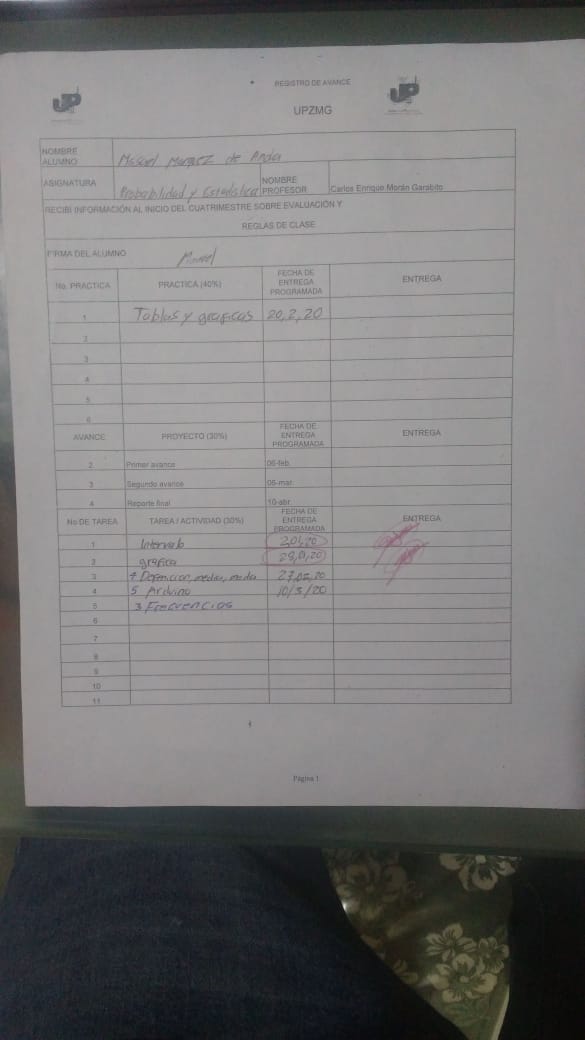 REGISTRO DE AVANCE
UP
UPZMG
UP
NOMBRE ALUMNO Marquez de Anda
ASIGNATURA Probabilidad y Estadistica NOMBRE PROFESOR Carlos Enrique Morán Garabito
RECIBI INFORMACIÓN AL INICIO DEL CUATRIMESTRE SOBRE EVALUACIÓN Y
REGLAS DE CLASE
FIRMA DEL ALUMNO
No. PRACTICA PRACTICA (40%) FECHA DE ENTREGA PROGRAMADA ENTREGA
1 Tablas y graficas 20,2,20
2
3
4
5
6
AVANCE PROYECTO (30%) FECHA DE ENTREGA PROGRAMADA ENTREGA
2 Primer avance 06-feb.
3 Segundo avance 06-mar.
4 Reporte final 10-abr.
No DE TAREA TAREA / ACTIVIDAD (30%) FECHA DE ENTREGA PROGRAMADA ENTREGA
1 Intervalo
2 grafica 28,01,20
3 4 Definicion, media, moda 27,02,20
4 5 Arduino 10/3/20
5 3 Frecuencias
6
7
8
9
10
11
Página 1